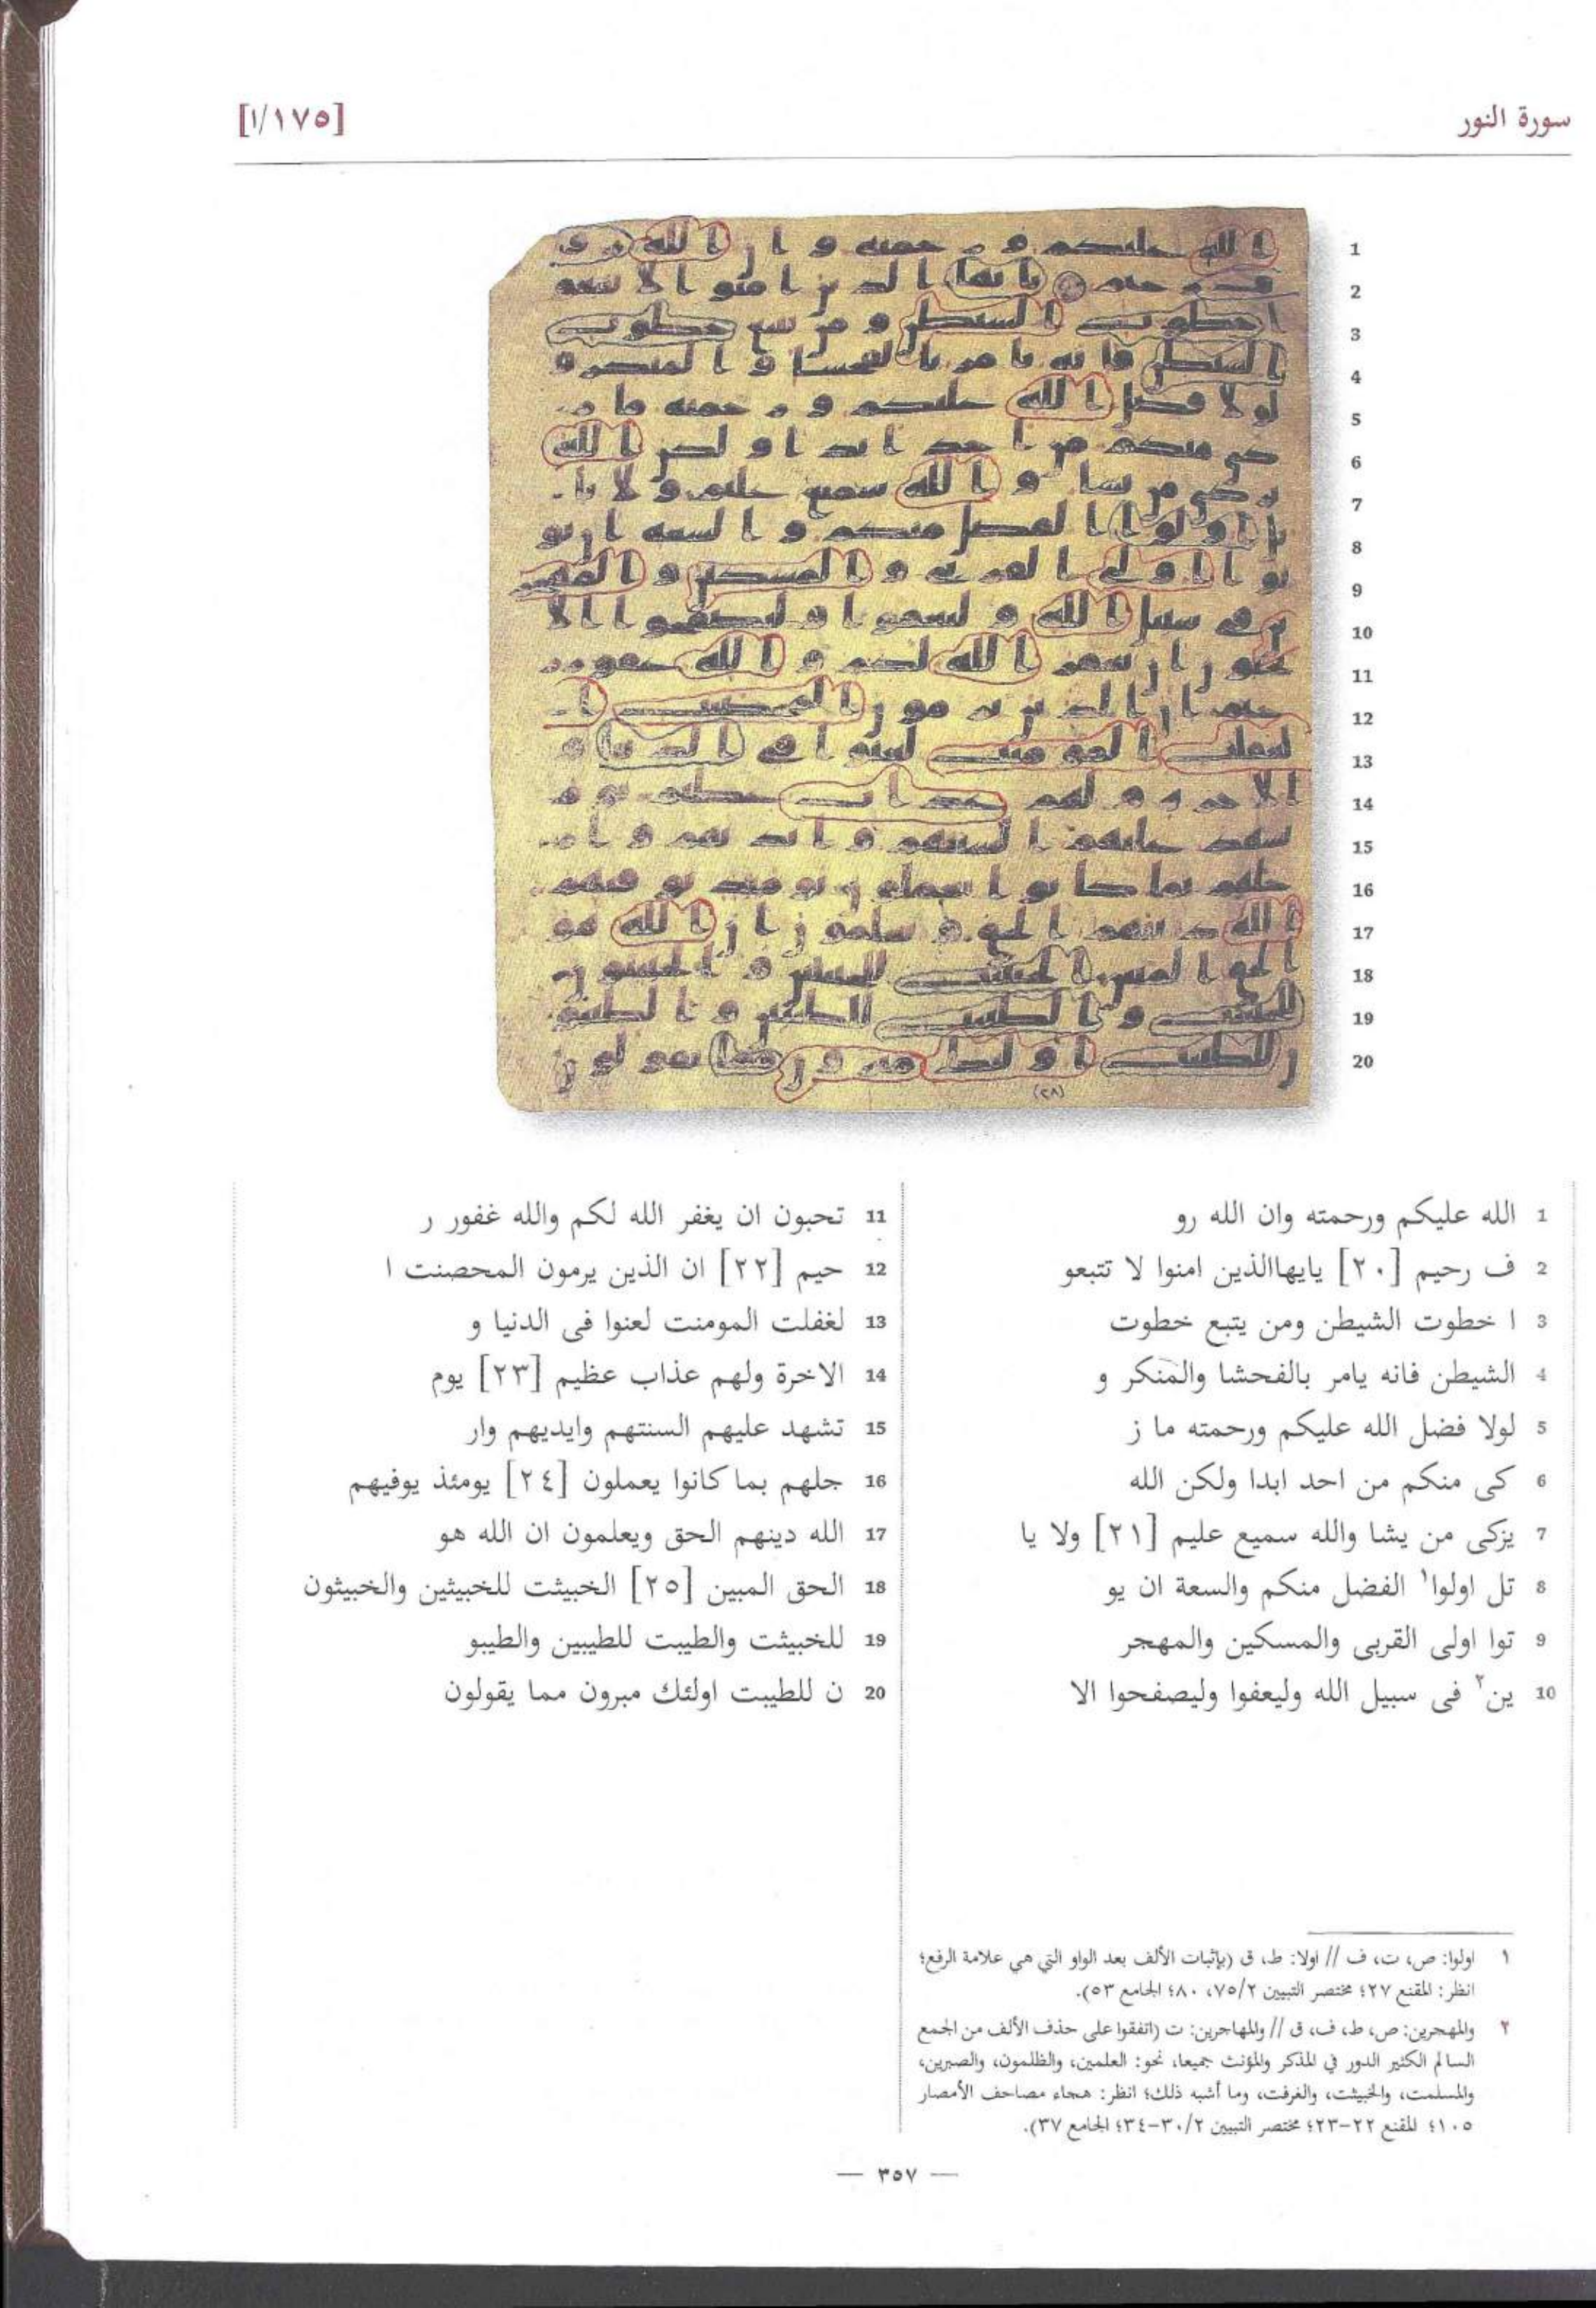 سورة النور
[١/١٧٥]
1
2
3
4
5
6
7
8
9
10
11
12
13
14
15
16
17
18
19
20
(٢٨)
1 الله عليكم ورحمته وان الله رو
2 ف رحيم [٢٠] يايهاالذين امنوا لا تتبعو
3 ا خطوت الشيطن ومن يتبع خطوت
4 الشيطن فانه يامر بالفحشا والمنكر و
5 لولا فضل الله عليكم ورحمته ما ز
6 كى منكم من احد ابدا ولكن الله
7 يزكى من يشا والله سميع عليم [٢١] ولا يا
8 تل اولوا١ الفضل منكم والسعة ان يو
9 توا اولى القربى والمسكين والمهجر
10 ين٢ فى سبيل الله وليعفوا وليصفحوا الا
11 تحبون ان يغفر الله لكم والله غفور ر
12 حيم [٢٢] ان الذين يرمون المحصنت ا
13 لغفلت المومنت لعنوا فى الدنيا و
14 الاخرة ولهم عذاب عظيم [٢٣] يوم
15 تشهد عليهم السنتهم وايديهم وار
16 جلهم بما كانوا يعملون [٢٤] يومئذ يوفيهم
17 الله دينهم الحق ويعلمون ان الله هو
18 الحق المبين [٢٥] الخبيثت للخبيثين والخبيثون
19 للخبيثت والطيبت للطيبين والطيبو
20 ن للطيبت اولئك مبرون مما يقولون
١ اولوا: ص، ت، ف // اولا: ط، ق (بإثبات الألف بعد الواو التي هي علامة الرفع؛
انظر: المقنع ٢٧؛ مختصر التبيين ٧٥/٢، ٨٠؛ الجامع ٥٣).
٢ والمهجرين: ص، ط، ف، ق // والمهاجرين: ت (اتفقوا على حذف الألف من الجمع
السالم الكثير الدور في المذكر والمؤنث جميعا، نحو: العلمين، والظلمون، والصبرين،
والمسلمت، والخبيثت، والغرفت، وما أشبه ذلك؛ انظر: هجاء مصاحف الأمصار
١٠٥؛ المقنع ٢٢-٢٣؛ مختصر التبيين ٣٠/٢-٣٤؛ الجامع ٣٧).
— ٣٥٧ —